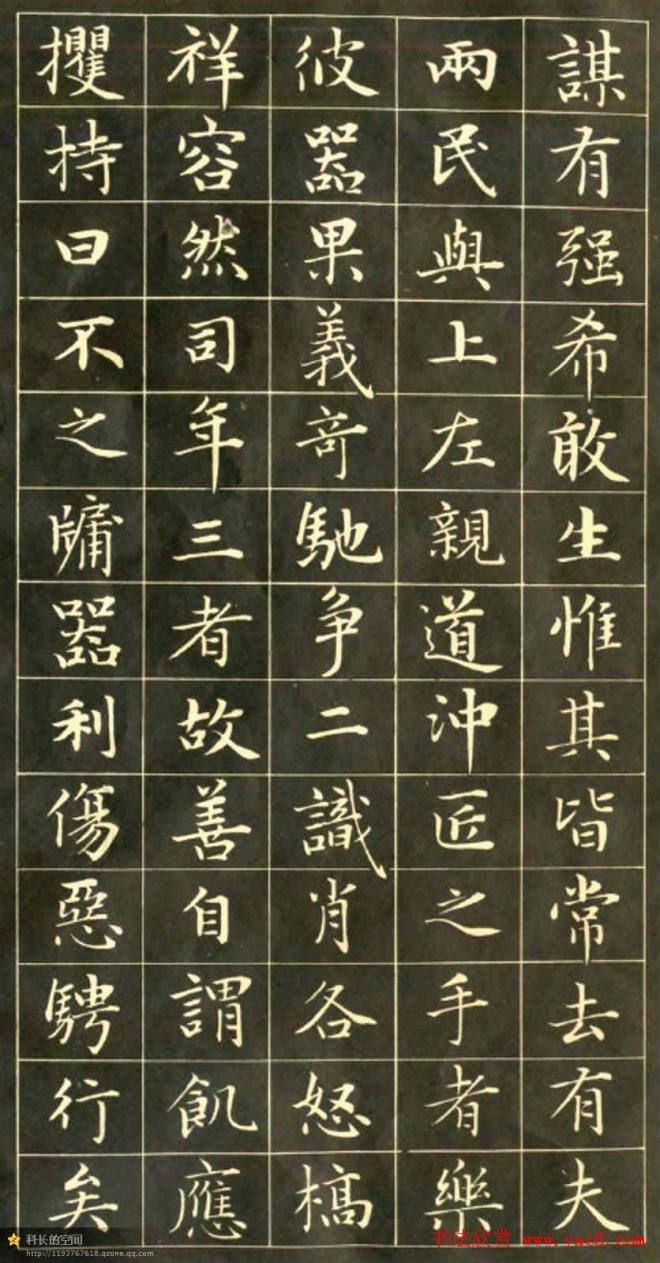 謀有强希敢生惟其皆常去有夫
兩民與上左親道沖匠之手者樂
彼器果義奇馳争二識肖各怒槁
祥容然司年三者故善自謂飢應
攫持曰不之牗器利傷惡騁行矣
科长的空间
http://1193767618.qzone.qq.com
书法欣赏 www.yac8.com